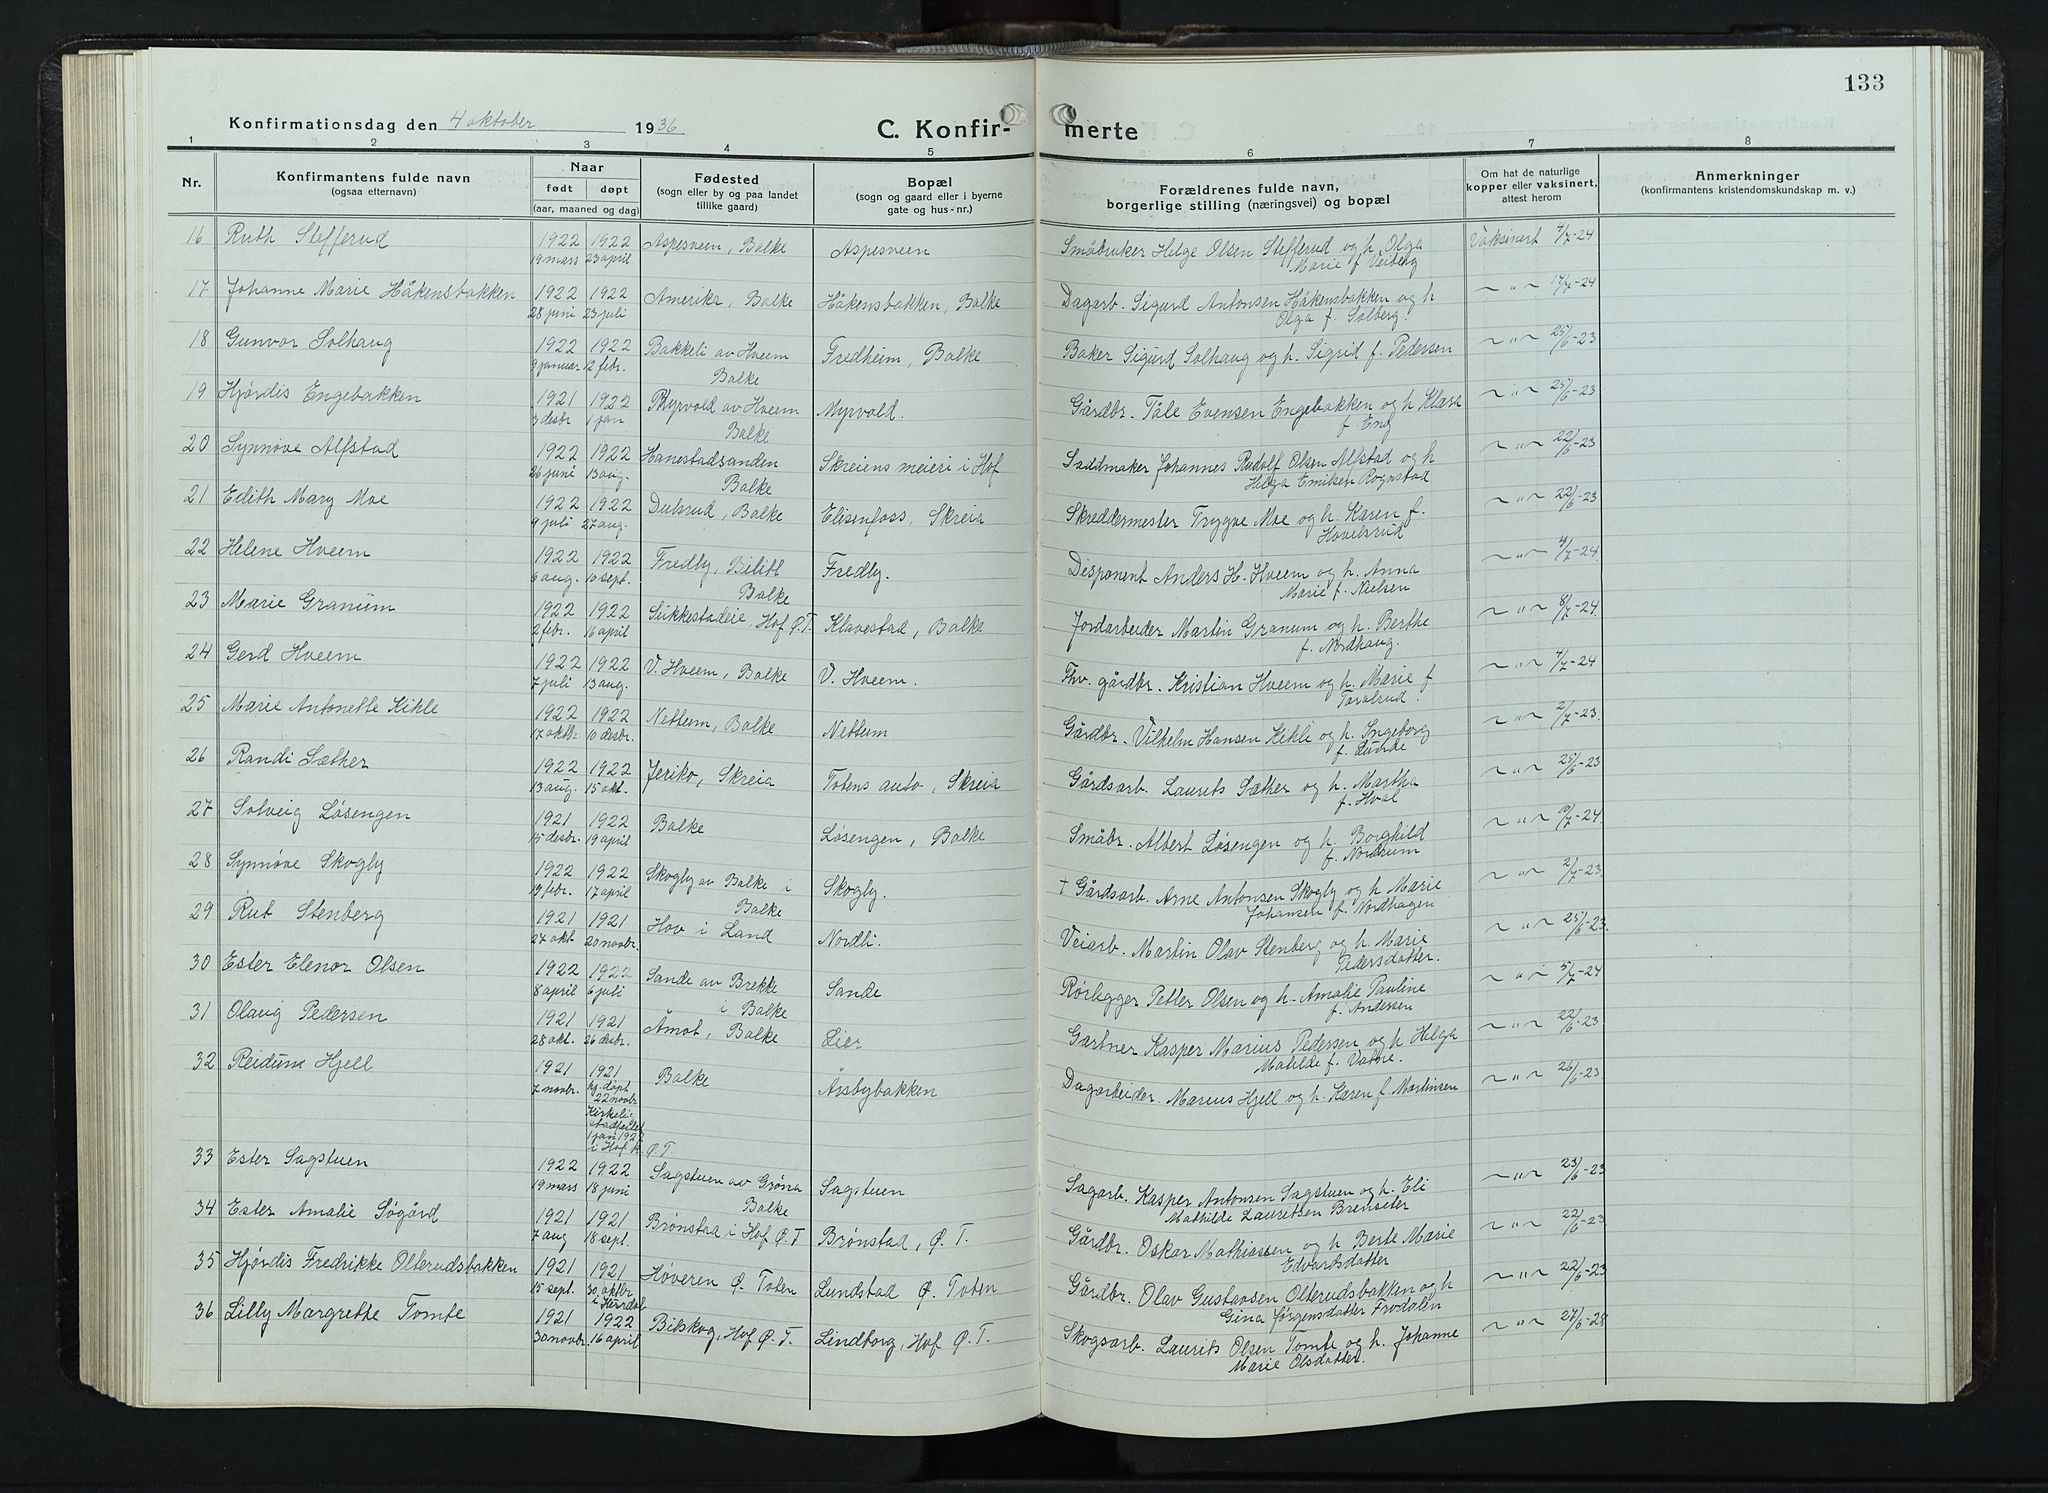 133
Konfirmationsdag den 4 oktober 1936
C. Konfirmerte
1 2 3 4 5 6 7 8
Nr.
Konfirmantens fulde navn
(ogsaa efternavn)
Naar
født døpt
(aar, maaned og dag)
Fødested
(sogn eller by og paa landet
tillike gaard)
Bopæl
(sogn og gaard eller i byerne
gate og hus-nr.)
Forældrenes fulde navn,
borgerlige stilling (næringsvei) og bopæl
Om hat de naturlige
kopper eller vaksinert,
attest herom
Anmerkninger
(konfirmantens kristendomskundskap m. v.)
16 Ruth Stefferud 1922 1922 Aspesveen, Balke Aspesveen Småbruker Helge Olsen Stefferud og h. Olga Vaksinert 4/7-24
19 mars 23 april Marie f. Veiberg
17 Johanne Marie Håkensbakken 1922 1922 Amerika, Balke Håkensbakken, Balke Dagarb. Sigurd Antonsen Håkensbakken og h ~ " ~ 14/7-24
28 juni 23 juli Olga f. Solberg.
18 Gunvor Solhaug 1922 1922 Bakkeli av Hveem Fredheim, Balke Baker Sigurd Solhaug og h. Sigrid f. Pedersen ~ " ~ 25/6-23
9 januar 12 febr. Balke
19 Hjørdis Engebakken 1921 1922 Myrvold av Hveem Myrvold. Gårdbr. Tåle Evensen Engebakken og h Klara ~ " ~ 25/6-23
3 desbr 1 jan Balke f. Eng
20 Synnøve Alfstad 1922 1922 Hanestadsanden Skreiens meieri i Hof Sadmaker Johannes Rudolf Olsen Alfstad og h ~ " ~ 22/6-23
26 juni 13 aug. Balke Helga Emilsen Rognstad
21 Edith Mary Moe 1922 1922 Dulsrud, Balke Elisenfoss, Skreia Skreddermester Trygve Moe og h. Karen f. ~ " ~ 22/6-23
9 juli 27 aug. Hovelsrud
22 Helene Hveem 1922 1922 Fredly, Bilitt Fredly. Disponent Anders H. Hveem og h. Anna ~ " ~ 4/7-24
6 aug. 10 sept. Balke Marie f. Nielsen
23 Marie Granum 1922 1922 Sukkestadeie, Hof Ø.T. Klavestad, Balke Jordarbeider Martin Granum og h. Berthe ~ " ~ 8/7-24
2 febr. 16 april f. Nordhaug.
24 Gerd Hveem 1922 1922 V. Hveem, Balke V. Hveem. Fhv. gårdbr. Kristian Hveem og h. Marie f ~ " ~ 4/7-24
7 juli 13 aug. Taralrud.
25 Marie Antonette Kihle 1922 1922 Nettum, Balke Nettum Gårdbr. Vilhelm Hansen Kihle og h. Ingeborg ~ " ~ 2/7-23.
17 oktbr 10 desbr. f. Lunde
26 Randi Sæther 1922 1922 Jeriko, Skreia Totens auto, Skreia Gårdsarb. Laurits Sæther og h. Martha ~ " ~ 25/6-23
13 aug. 15 okt. f. Hval
27 Solveig Løsengen 1921 1922 Balke Løsengen, Balke Småbr. Albert Løsengen og h. Borghild ~ " ~ 10/7-24
15 desbr. 19 april f. Nordrum
28 Synnøve Skogby 1922 1922 Skogby av Balke i Skogby. + Gårdsarb. Arne Antonsen Skogby og h. Marie ~ " ~ 2/7-23
19 febr. 17 april Balke Johansen f. Nordhagen
29 Rut Stenberg 1921 1921 Hov i Land Nordli. Veiarb. Martin Olav Stenberg og h. Marie ~ " ~ 25/6-23
27 okt. 20 novbr. Pedersdatter.
30 Ester Elenor Olsen 1922 1922 Sande av Brekke Sande Rørlegger Petter Olsen og h. Amalie Pauline ~ " ~ 5/7-24
8 april 6 juli i Balke f. Andersen
31 Olaug Pedersen 1921 1921 Åmot, Balke Lier Gartner Kasper Marius Pedersen og h Helga ~ " ~ 22/6-23
28 okt. 26 desbr. Matilde f.
32 Reidun Hjell 1921 1921 Balke Årsbybakken Dagarbeider Marius Hjell og h. Karen f. Martinsen ~ " ~ 26/6-23
7 novbr. hj.døpt
22 novbr
Kirkelig
stadfestet
1 jan. 1922
i Hof k. Ø T
33 Ester Sagstuen 1922 1922 Sagstuen av Grøna Sagstuen Sagarb. Kasper Antonsen Sagstuen og h. Eli ~ " ~ 23/6-23
19 mars 18 juni Balke Mathilde Lauritsen Brenseter
34 Ester Amalie Søgård 1921 1921 Brønstad i Hof Ø.T Brønstad, Ø. T. Gårdbr. Oskar Mathiassen og h Berte Marie ~ " ~ 22/6-23
7 aug 18 sept. Edvardsdatter
35 Hjørdis Fredrikke Olterudsbakken 1921 1921 Høveren Ø. Toten Lundstad Ø. Toten Gårdbr. Olav Gustavsen Olterudsbakken og h ~ " ~ 22/6-23
15 sept. 30 oktbr Gina Jørgensdatter Frodalen
36 Lilly Margrethe Tomte 1921 1922 Bilskog, Hof Ø. T. Lindborg, Hof Ø. T. Skogsarb. Laurits Olsen Tomte og h. Johanne ~ " ~ 27/6-28
30 novbr. 16 april Marie Olsdatter.